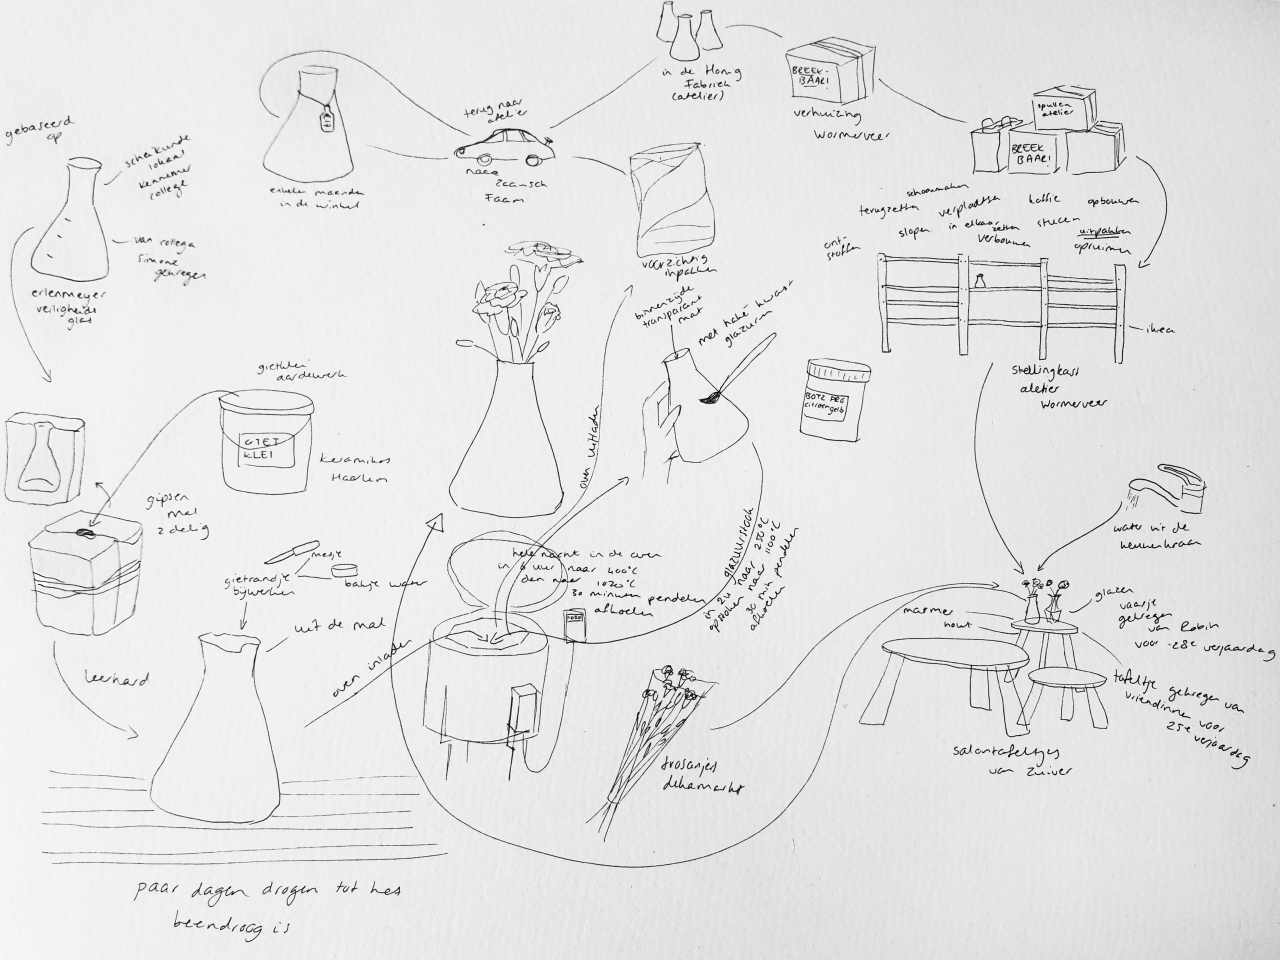 gebaseerd
op
scheikunde
lokaal
kennemer
college
van collega
Simone
gekregen
erlenmeyer
veiligheids
glas
enkele maanden
in de winkel
terug naar
atelier
naar
Zaansch
Faam
in de Honig
Fabriek
(atelier)
BREEK-
BAAR!
verhuizing
Wormerveer
spullen
atelier
BREEK
BAAR!
schoonmaken
terugzetten
verplaatsen
koffie
opbouwen
slopen
in elkaar
zetten
stucen
uitpakken
verbouwen
opruimen
ont-
stoffen
ikea
Stellingkast
atelier
Wormerveer
voorzichtig
inpakken
binnenzijde
transparant
mat
met haké-kwast
glazuren
BOTZ PRO
citroengelb
gietklei
aardewerk
GIET
KLEI
Keramikos
Haarlem
gipsen
mal
2 delig
mesje
bakje water
gietrandje
bijwerken
uit de mal
leerhard
oven inladen
oven uitladen
hele nacht in de oven
in 6 uur naar 400°C
dan naar 1020°C
30 minuten pendelen
afkoelen
1020
glazuurstook
in 2u naar 250°C
opstoken naar 1100°C
30 min pendelen
afkoelen
water uit de
keukenkraan
glazen
vaasje
gekregen
van Robin
voor 28e verjaardag
marmer
hout
tafeltje gekregen van
vriendinnen voor
25e verjaardag
salontafeltjes
van Zuiver
trosanjers
dekamarkt
paar dagen drogen tot het
beendroog is